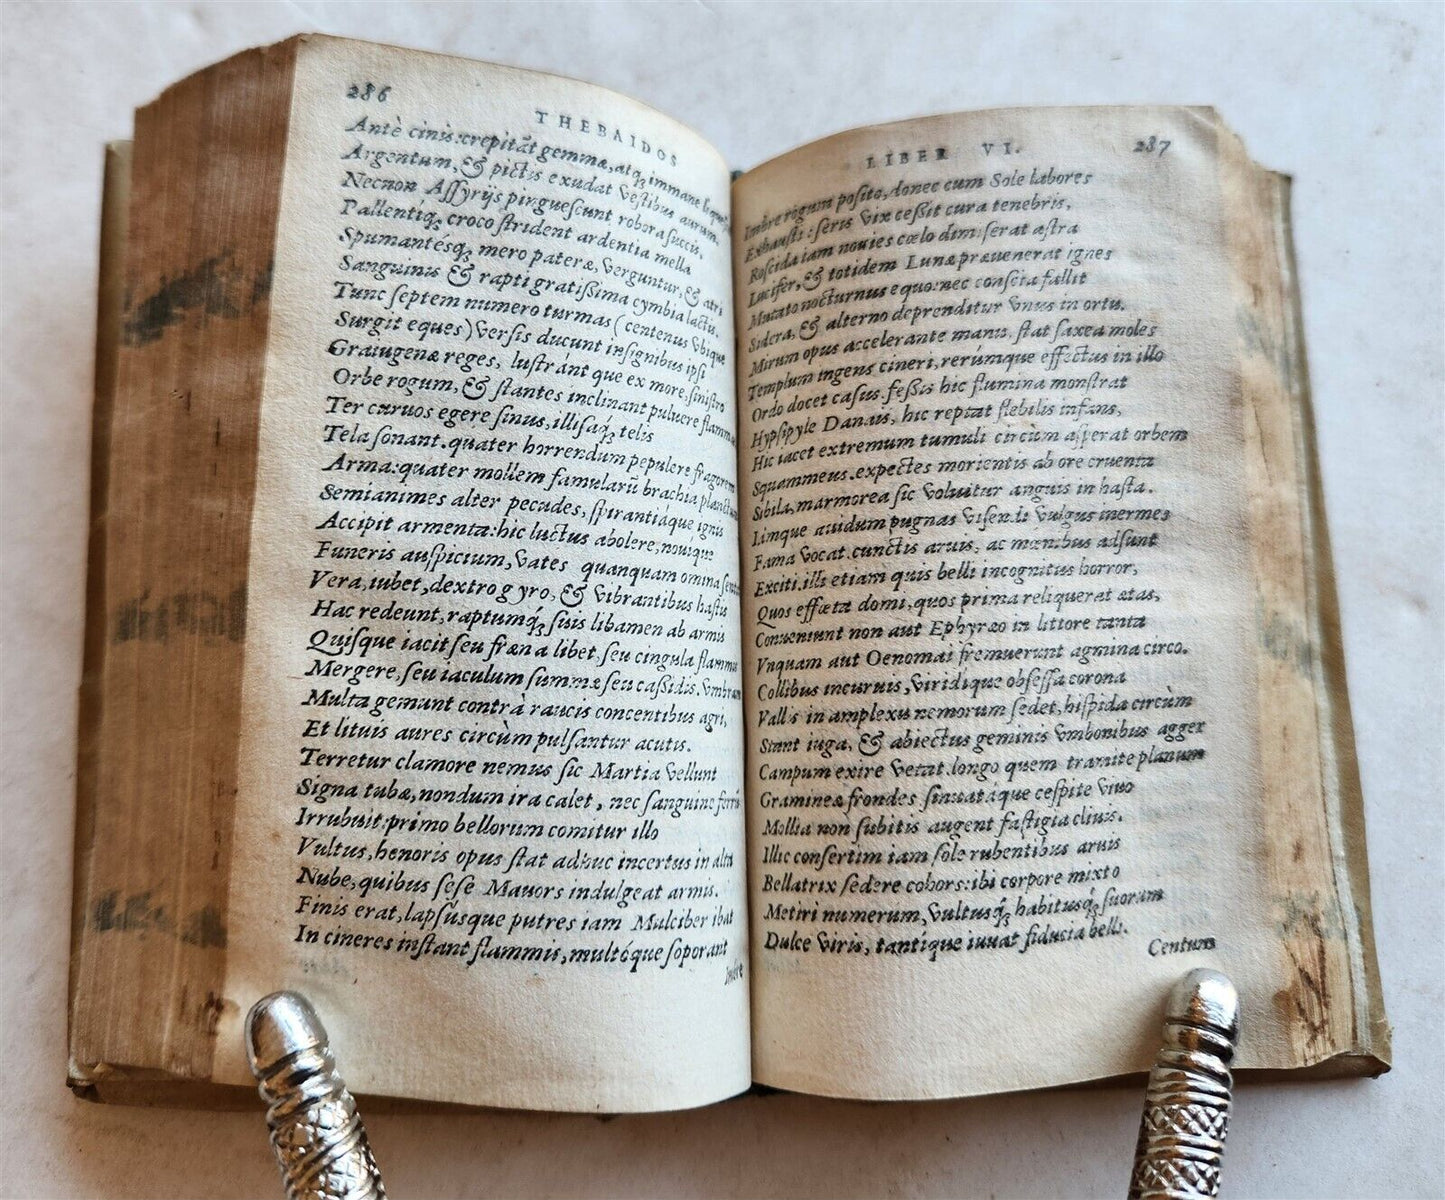 286
THEBAIDOS
Antè cinis:crepitãt gemmæ,atq; immane
Argentum,& pictis exudat vestibus aurum.
Necnon Assyrijs pinguescunt robora succis,
Pallentíq; croco strident ardentia mella
Spumantésq; mero pateræ, verguntur,& atri
Sanguinis & rapti gratissima cymbia lactis.
Tunc septem numero turmas (centenus vbique
Surgit eques) versis ducunt insignibus ipsi
Graiugenæ reges, lustránt que ex more, sinistro
Orbe rogum, & stantes inclinant puluere flammas
Ter curuos egere sinus, illisaq; telis
Tela sonant. quater horrendum pepulere fragorem
Arma:quater mollem famularũ brachia planctum
Semianimes alter pecudes, spirantiáque ignis
Accipit armenta:hic luctus abolere, nouíque
Funeris auspicium, vates quanquam omina
Vera, iubet, dextro gyro, & vibrantibus hastis
Hac redeunt, raptumq́; suis libamen ab armis
Quisque iacit seu fræna libet, seu cingula flammis
Mergere, seu iaculum summæ seu cassidis, vmbram
Multa gemunt contrà raucis concentibus agri,
Et lituis aures circùm pulsantur acutis.
Terretur clamore nemus sic Martia vellunt
Signa tubæ, nondum ira calet, nec sanguine ferrũ
Irrubuit:primo bellorum comitur illo
Vultus, honoris opus stat adhuc incertus in alta
Nube, quibus sese Mauors indulgeat armis.
Finis erat, lapsúsque putres iam Mulciber ibat
In cineres instant flammis, multóque soporant
Imbre
LIBER VI. 287
Imbre rogum posito, donec cum Sole labores
Exhausti: seris vix cessit cura tenebris,
Roscida iam nouies cœlo dimiserat astra
Lucifer, & totidem Lunæ præuenerat ignes
Mutato nocturnus equo:nec conscia fallit
Sidera, & alterno deprenditur vnus in ortu.
Mirum opus accelerante manu, stat saxea moles
Templum ingens cineri, rerúmque effectus in illo
Ordo docet casus. fessis hic flumina monstrat
Hypsipyle Danais, hic reptat flebilis infans,
Hic iacet extremum tumuli circùm asperat orbem
Squammeus. expectes morientis ab ore cruenta
Sibila, marmorea sic voluitur anguis in hasta.
Iámque auidum pugnas visendi vulgus inermes
Fama vocat. cunctis aruis, ac mœnibus adsunt
Exciti. illi etiam quis belli incognitus horror,
Quos effœta domi, quos prima reliquerat ætas,
Conueniunt non aut Ephyræo in littore tanta
Vnquam aut Oenomai fremuerunt agmina circo.
Collibus incuruis, viridíque obsessa corona
Vallis in amplexu nemorum sedet, hispida circùm
Stant iuga, & abiectus geminis vmbonibus agger
Campum exire vetat. longo quem tramite planum
Gramineæ frondes sinuatáque cespite viuo
Mollia non subitis augent fastigia cliuis.
Illic confertim iam sole rubentibus aruis
Bellatrix sedere cohors:ibi corpore mixto
Metiri numerum, vultusq́; habitusq́; suorum
Dulce viris, tantíque iuuat fiducia belli.
Centum